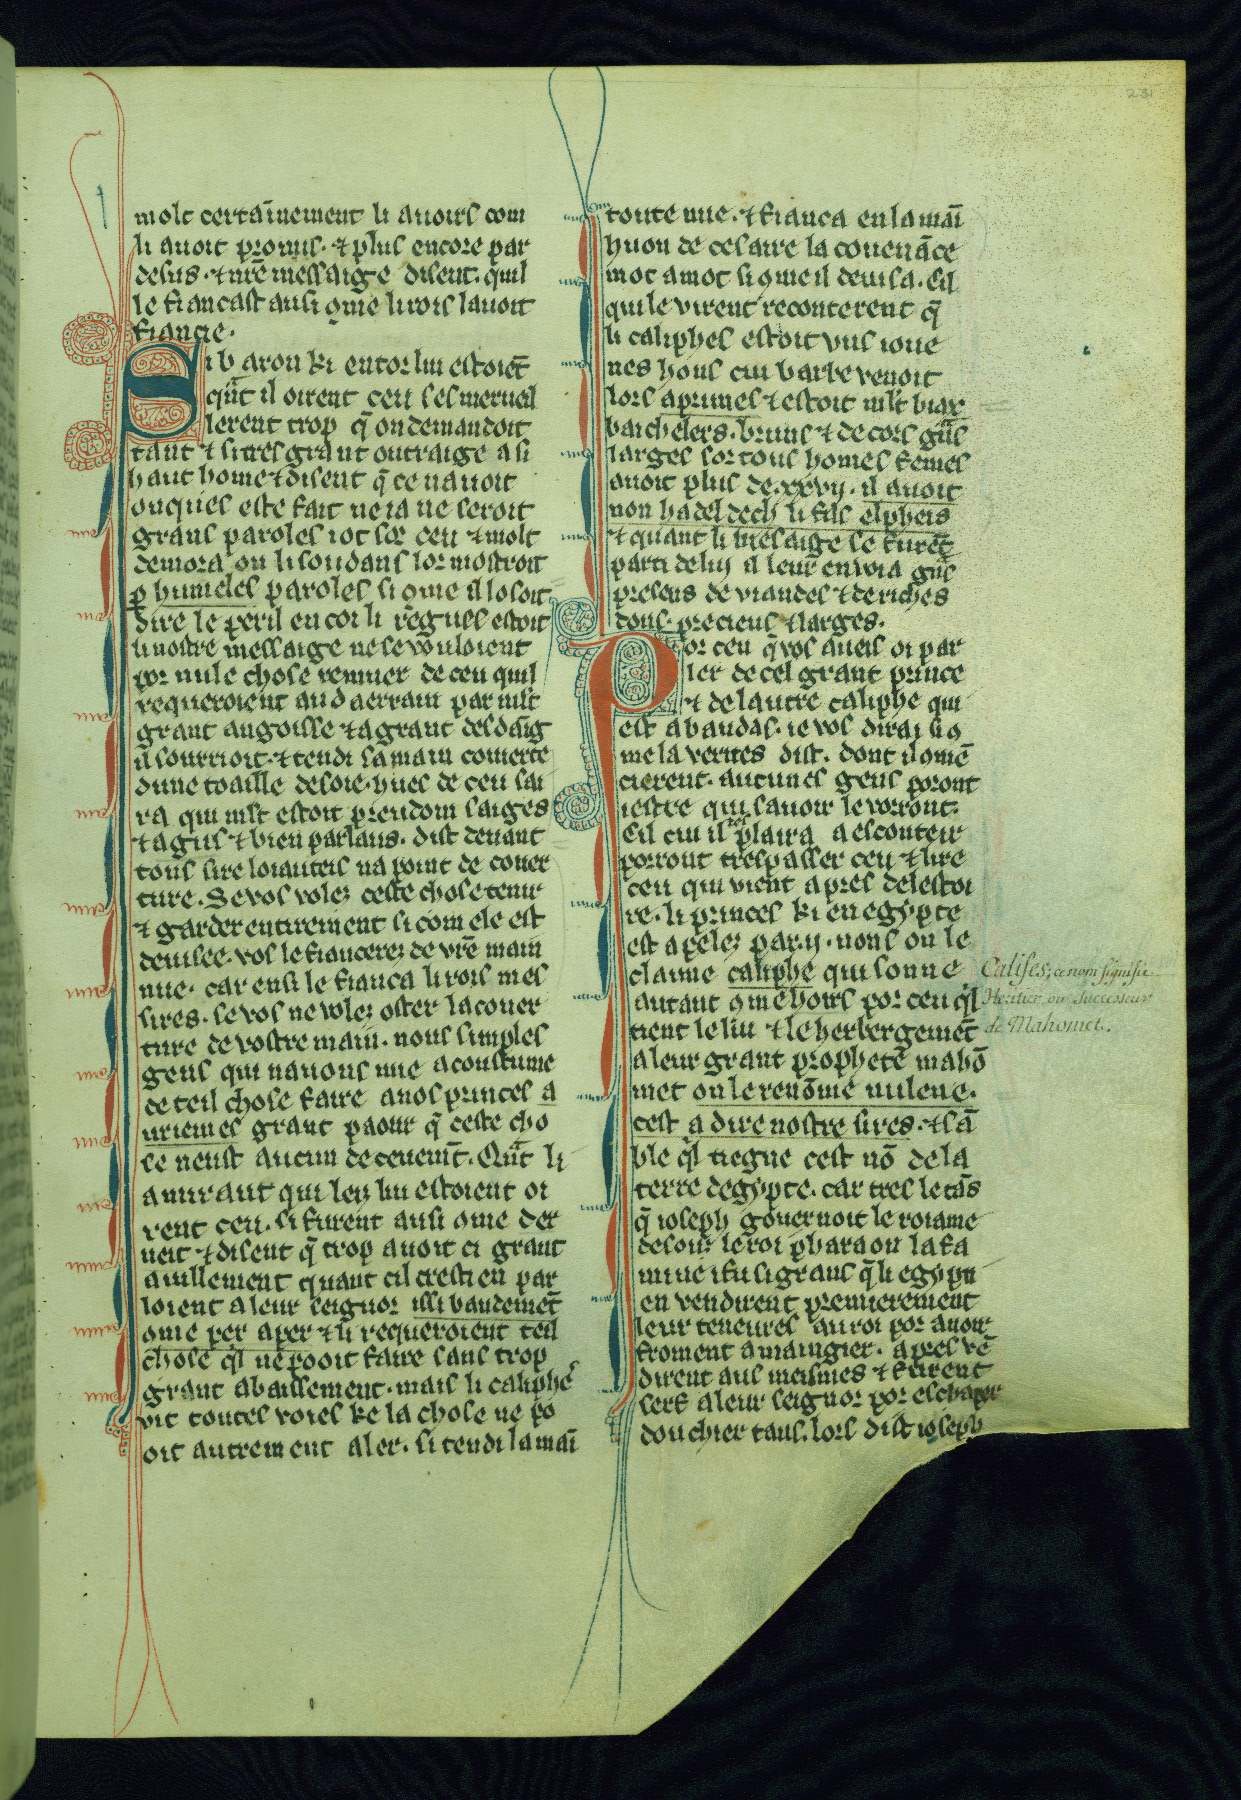 231
molt certainement li auoirs com
li auoit promis. ⁊ plus encore par
desus. ⁊ nr̄e messaige disent. quil
le fiancast ausi ꝯme li rois lauoit
fiancie.
Si baron ki entor lui estoiēt
quāt il oirent ceu sesmerueil
lerent trop q̄ on demandoit
tant ⁊ si tres grant outraige a si
haut home ⁊ disent q̄ ce nauoit
onques este fait ne ia ne seroit
grans paroles iot sor ceu ⁊ molt
demora ou li soudans lor mostroit
ꝑ humeles paroles si ꝯme il losoit
dire le peril en cor li regnes estoit
li nostre messaige ne se vouloient
por nule chose remuer de ceu quil
requeroient au daerrain par mlt
grant angoisse ⁊ a grant desdāig
il sourrioit. ⁊ tendi sa main couerte
dune toaille de soie. hues de cesai
ra qui mlt estoit preudom saiges
⁊ agus ⁊ bien parlans. dist deuant
tous sire loiauteis na point de couer
ture. Se vos volez ceste chose tenir
⁊ garder entirement si com ele est
deuisee. vos le fiancerez de vr̄e main
nue. car ensi le fianca li rois mes
sires. se vos ne volez oster la couer
ture de vostre main. nous simples
gens qui nauons mie acoustume
de teil chose faire a nos princes a
uriemes grant paour q̄ ceste cho
se neust aucun deceuemt̄. Quāt li
amirant qui leiz lui estoient oi
rent ceu. si furent ausi ꝯme der
ueit ⁊ disent q̄ trop auoit ci grant
auillement quant cil crestien par
loient a leur seignor issi baudemēt
ꝯme per a per ⁊ li requeroient teil
chose ql ne pooit faire sans trop
grant abaissement. mais li caliphe
vit toutes voies ke la chose ne po
oit autrement aler. si tendi la maī
toute nue. ⁊ fianca en la maī
huon de cesaire la couenāce
mot a mot si ꝯme il deuisa. Cil
qui le virent reconterent q̄
li caliphes estoit vns ioue
nes hons cui barbe venoit
lors a primes ⁊ estoit mlt biax
baichelers. bruns ⁊ de cors gns̄
larges sor tous homes femes
auoit plus de .xxvij. il auoit
non hadeldech li fils elpheis
⁊ quant li messaige se furēt
parti de luj il leur enuoia gns̄
presens de viandes ⁊ de riches
dons. precieus ⁊ larges.
Por ceu q̄ vos aueis oi par
ler de cel grant prince
⁊ de lautre caliphe qui
est a baudas. ie vos dirai si ꝯ
me la verites dist. dont il omē
cierent. aucunes gens poront
iestre qui sauoir le vorront.
Cil cui il plaira a escouteir
porront trespasser ceu ⁊ lire
ceu qui vient apres delestoi
re. li princes ki en egypte
est apelez par .ij. nons on le
claime caliphe qui sonne
autant ꝯme hoirs por ceu ql
tient le liu ⁊ le herbergemēt
a leur grant prophete mahō
met on le renōme mulene.
cest a dire nostre sires. ⁊ sā
ble ql tiegne cest nō de la
terre degypte. car tres le tās
q̄ ioseph gouernoit le roiame
desouz le roi pharaon la fa
mine i fu si grans q̄ li egypti
en vendirent premierement
leur teneures au roi por auoir
froment a maingier. apres vē
dirent aus meismes ⁊ furent
serf a leur seignor por eschaper
dou chier tans. lors dist ioseph
Califes, ce nom signifie
Heritier, ou Successeur
de Mahomet.